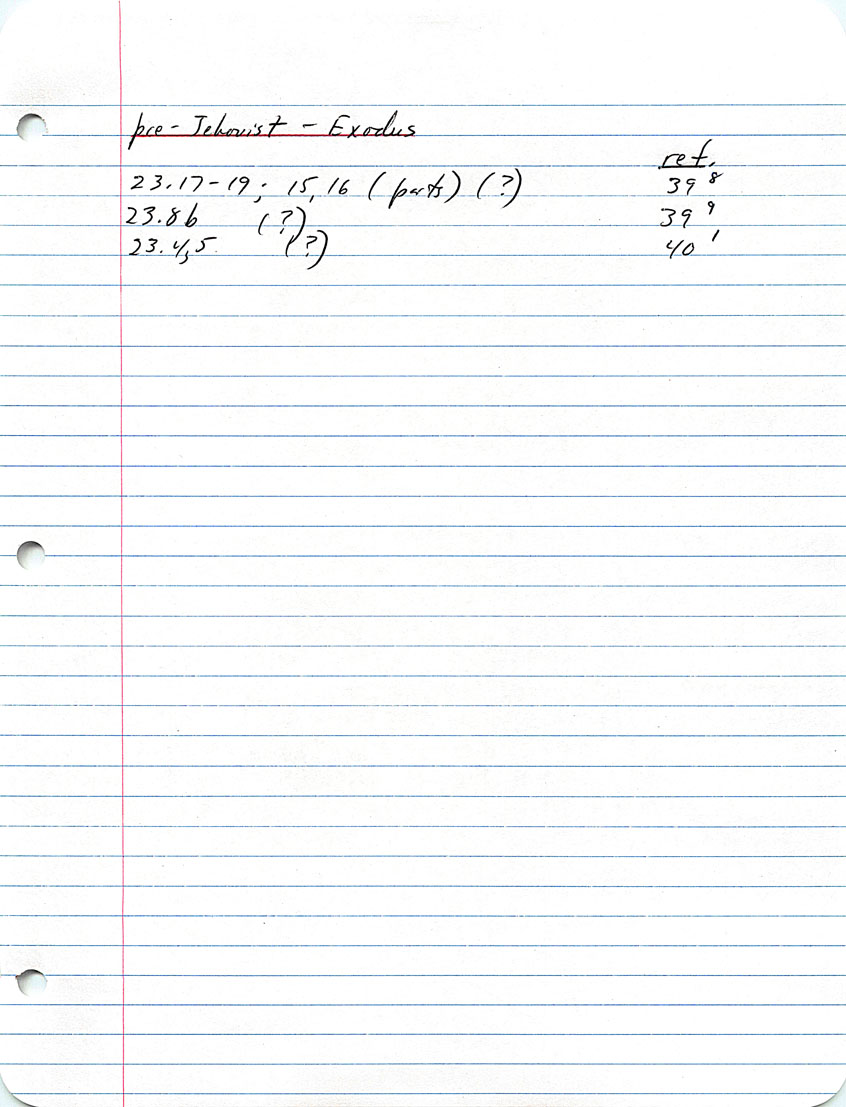 pre-Jehovist - Exodus
ref.
23.17-19; 15,16 (parts) (?) 39 8
23.8b (?) 39 9
23.4,5 (?) 40 1